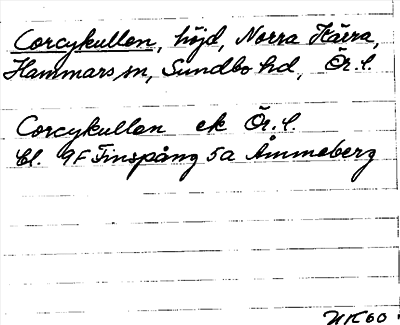 Corcykullen, höjd, Norra Kärra,
Hammars sn, Sundbo hd, Ör. l.
Corcykullen ek Ör. l.
bl. 9F Finspång 5a Åmmeberg
NK60